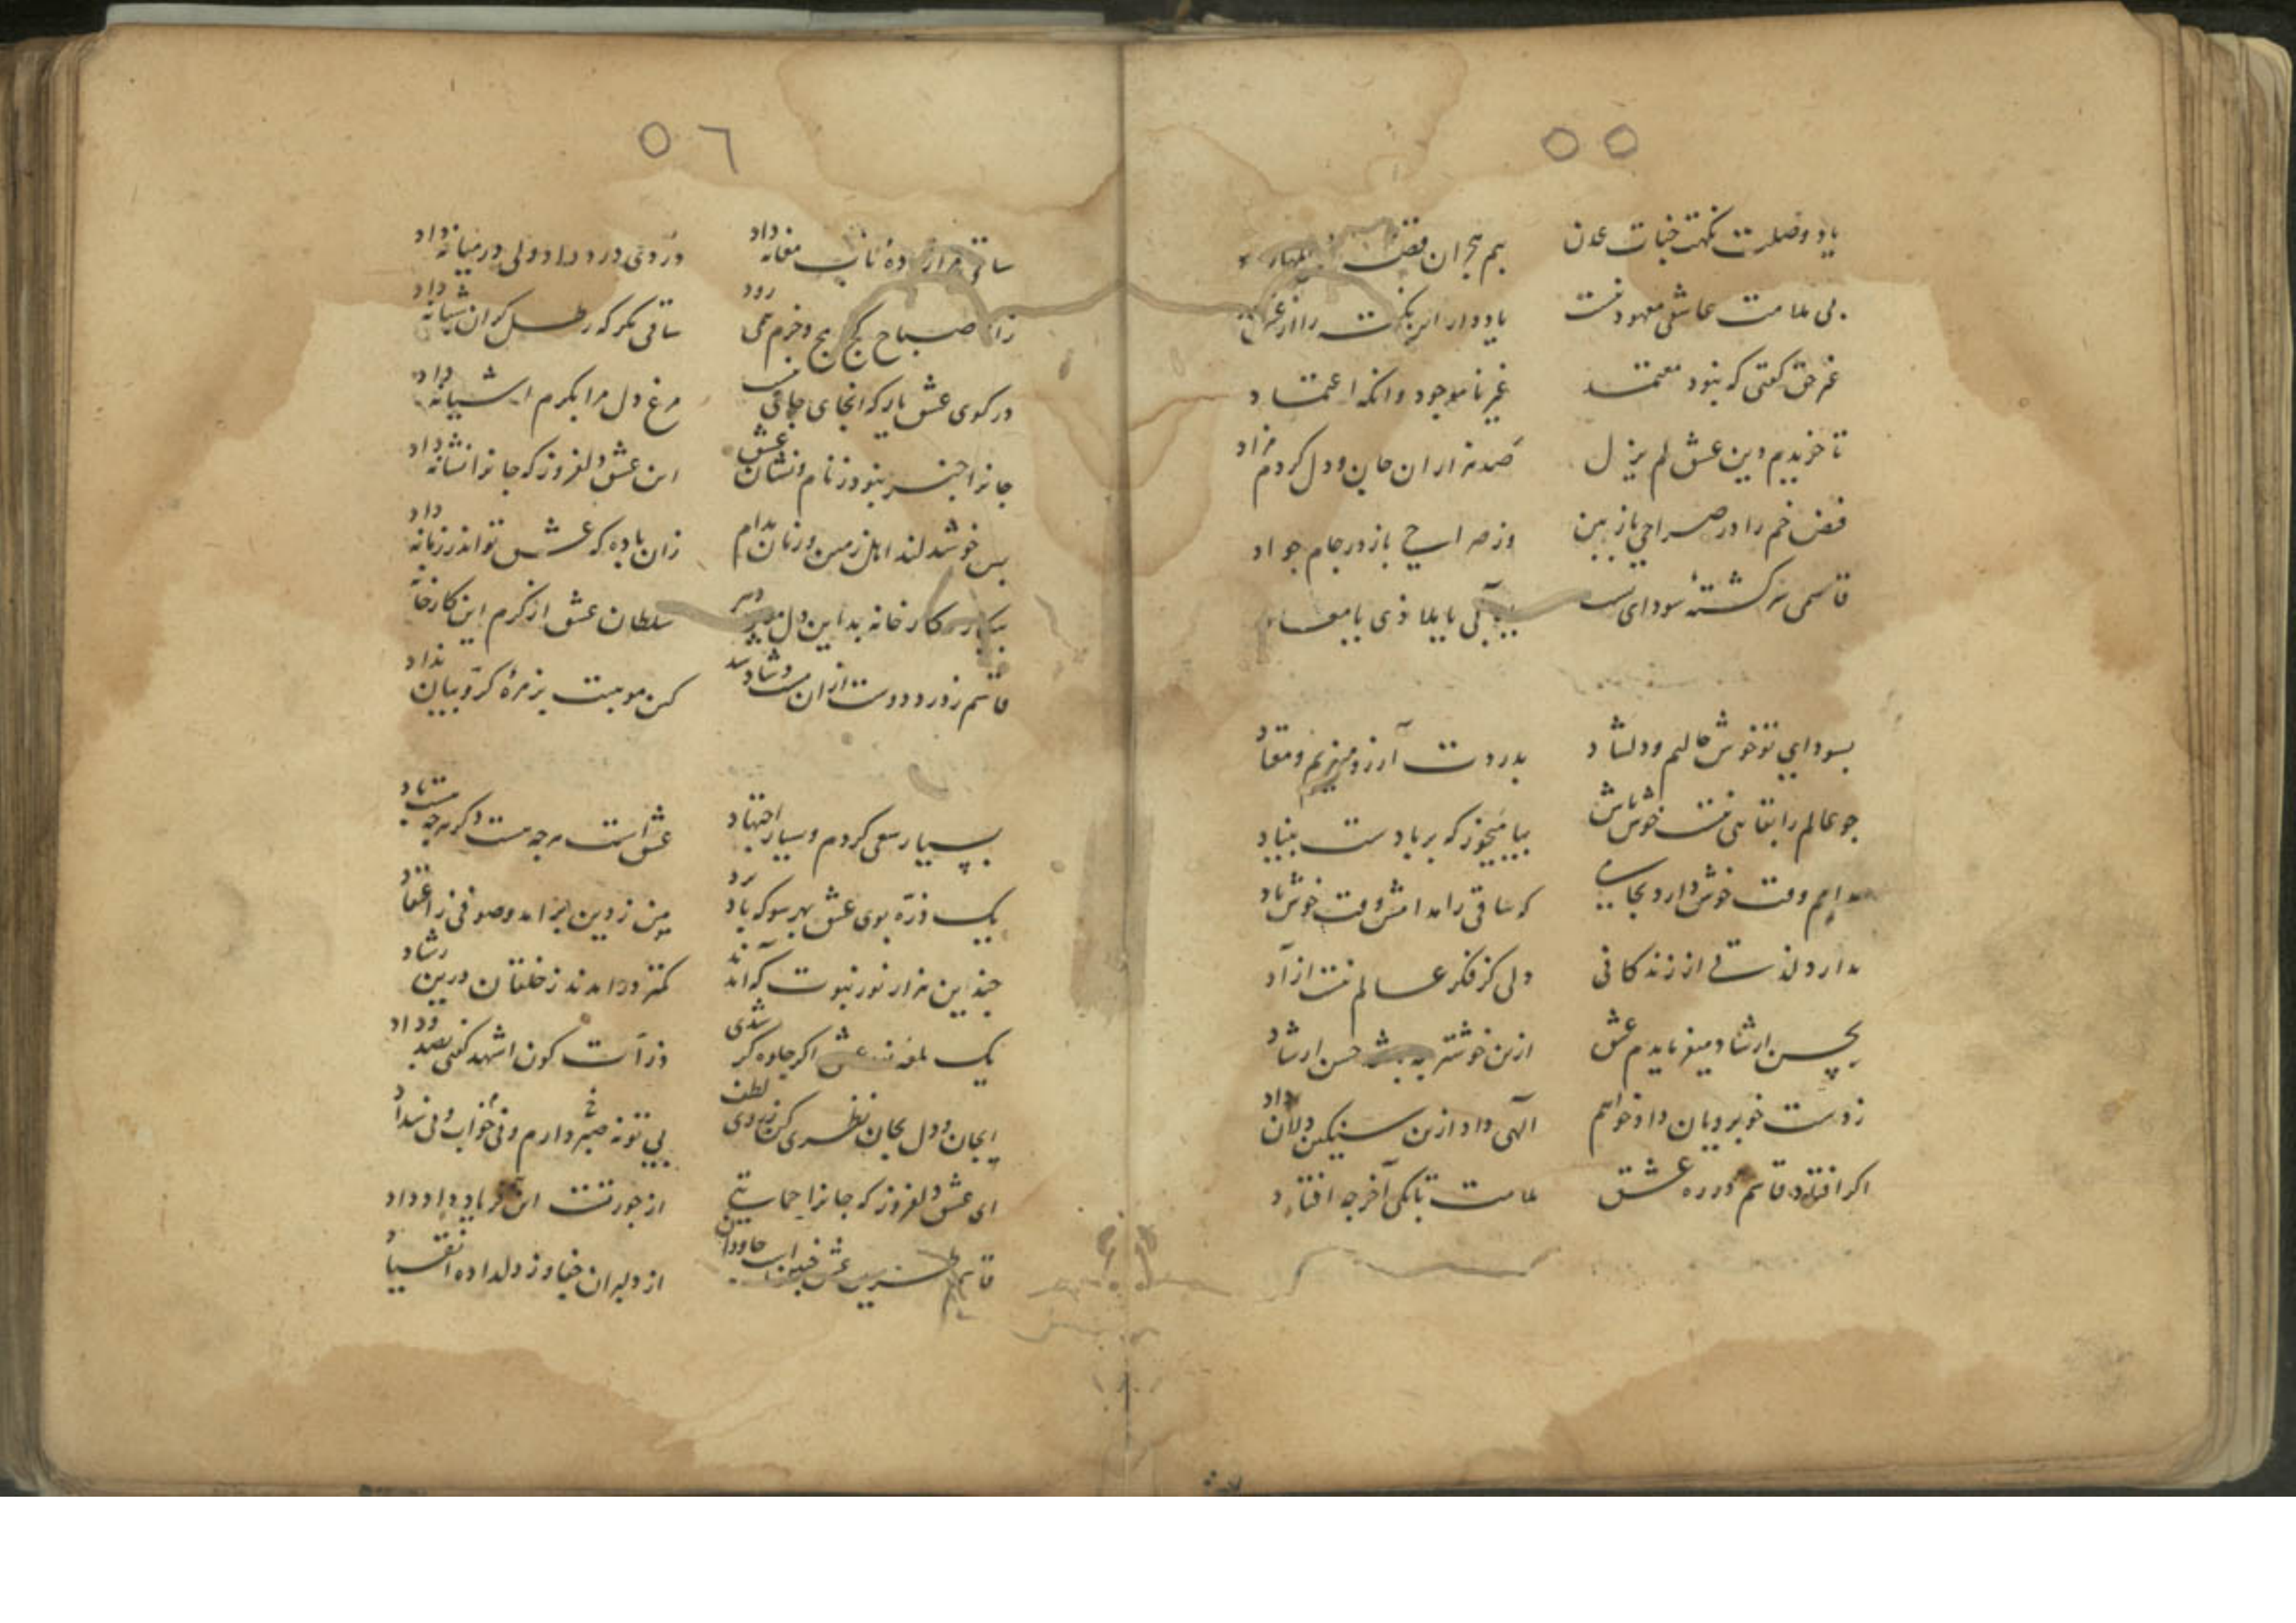 ٥٥
یاد وصلت نکهت جنات عدن
بیم هجران
بی ملامت عاشقی معهود نیست
یاد دار این نکته را از
غیر حق کفتی که نبود معتمد
غیر ناموجود وانکه اعتماد
تا خریدیم دین عشق لم یزل
صد هزاران جان و دل کردم مزاد
فیض خم را در صراحی باز بین
وز صراحی باز در جام جواد
قاسمی سرکشتهٔ سودای تست
یا ملاذی یا معاد
بسودای تو خوش حالیم و دلشاد
بدردت آرزومندیم و معتاد
جو عالم را بقایی نیست خوش باش
بیا می خور که بر بادست بنیاد
مدامم وقت خوش دارد بجامی
که ساقی را مدامش وقت خوش باد
ندارد لذتی از زندکانی
دلی کز فکر عالم نیست ازاد
بحسن ارشاد میفرمایدم عشق
ازین خوشتر حسن ارشاد
ز دست خوبرویان داد خواهم
الهی داد ازین سنکین دلان داد
اکر افتاد قاسم در ره عشق
ملامت تا بکی آخر جه افتاد
٥٦
ساقی مرا ز بادهٔ ناب مغانه داد
دردی درد داد ولی در میانه داد
زان صباح کج مج و خرم همی رود
ساقی مکر که رطل کران شبانه داد
در کوی عشق یار که انجای جای نیست
مرغ دل مرا بکرم اشیانه داد
جانرا خبر نبود ز نام و نشان عشق
این عشق دلفروز که جانرا نشانه داد
بس خوشدلند اهل زمین و زمان مدام
زان باده که عشق تو اندر زمانه داد
کارخانه بد این دل
سلطان عشق از کرم این کارخانه
قاسم ز درد دوست ازان مست و شاد شد
کین موهبت بزمرهٔ کروبیان نداد
بسیار سعی کردم و بسیار اجتهاد
عشق است هرجه هست دکر هرجه هست باد
یک ذره بوی عشق بهر سو که باد برد
مومن ز دین برامد و صوفی ز اعتقاد
جندین هزار نور نبوت که آمدند
کمتر درامدند ز خلقان درین رشاد
یک لمعه عشق اکر جلوه کر شدی
ذرات کون اشهد کفتی بصد وداد
ای جان و دل بجان نظری کن ز روی لطف
بی تو نه صبر دارم و نی خواب و نی
ای عشق دلفروز که جانرا حمایتی
از جور تست این فریاد و داد داد
قاسم عشق جاودان
از دلبران جفا و ز دلداده انقیاد